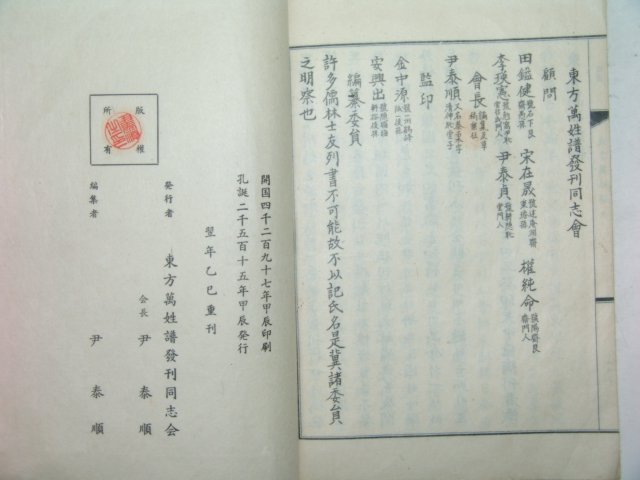 東方萬姓譜發刊同志會
顧問
田鎰健 宋在晟 權純命
李瑛憲 尹泰貞
會長
尹泰順
監印
金中源
安興出
編纂委員
許多儒林士友列書不可能故不以記氏名是冀諸委員
之明察也
開国四千二百九十七年甲辰印刷
孔誕二千五百十五年甲辰発行
翌年乙巳重刊
発行者 東方萬姓譜發刊同志会
会長 尹泰順
編集者 尹泰順
版權
所有